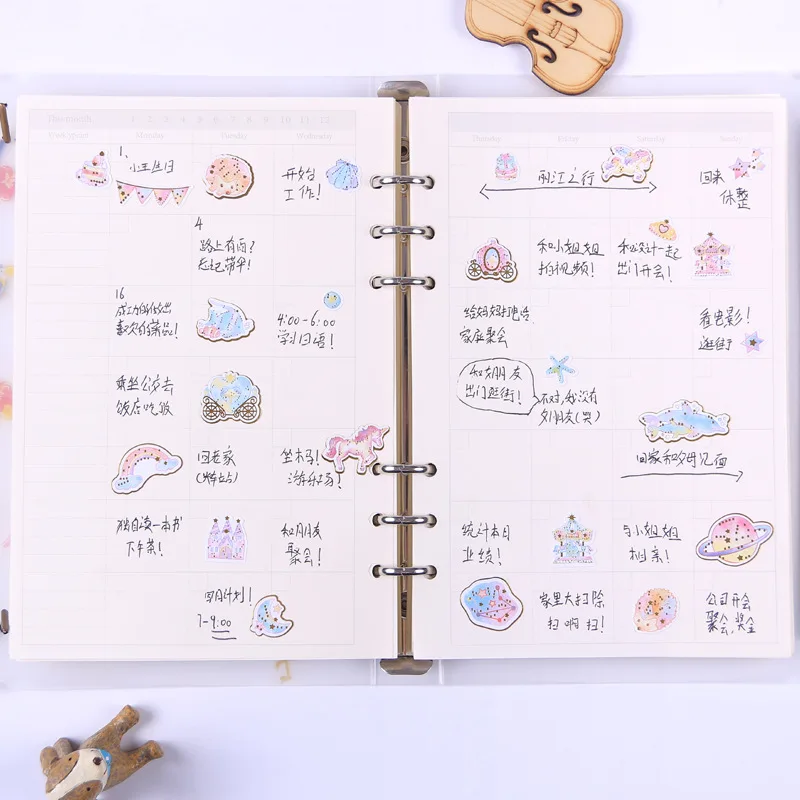 1 2 3 4 5 6 7 8 9 10 11 12
Monday Tuesday Wednesday
Thursday Friday Saturday Sunday
1.
小生日
开始
工作!
丽江之行
回来
休整
4
路上有雨?
忘记带伞!
和小姐姐
拍视频!
和设计一起
出门开会!
16
成功做出
喜欢的菜品!
4:00-6:00
学习日语!
给妈妈打电话
家庭聚会
看电影!
逛街
乘坐公交去
饭店吃饭
和女朋友
出门逛街!
不对,我没有
女朋友(哭)
回老家
坐木马!
游乐场!
回家和父母见面
独自读一本书
下午茶!
和朋友
聚会!
统计本日
业绩!
与小姐姐
相亲!
四月计划!
7-9:00
家里大扫除
扫啊扫!
公司开会
聚会,奖金